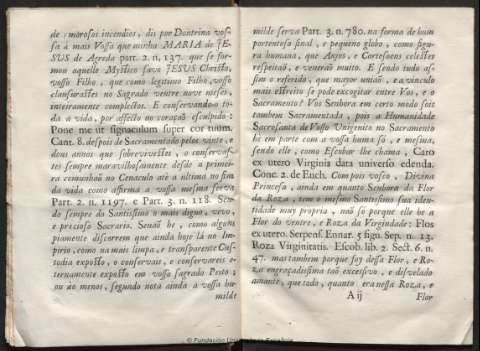 de amorosos incendios, diz por Doutrina vos-
sa à mais Vossa que minha MARIA de JE-
SUS de Agreda part. 2. n. 137. que se for-
mou aquelle Mystico favo JESUS Christo,
vosso Filho, que como legitimo Filho vosso
clausurastes no Sagrado ventre nove meses,
inteiramente completos. E conservando-o to-
da a vida, por affecto no coraçaõ esculpido:
Pone me ut signaculum super cor tuum.
Cant. 8. despois de Sacramentado pelos vinte, e
dous annos que sobrevivestes, o conservas-
tes sempre maravilhosamente desde a primei-
ra communhaõ no Cenaculo atè a ultima no fim
da vida como affirma a vossa mesma serva
Part. 2. n. 1197. e Part. 3. n. 118. Sen-
do sempre do Santissimo o mais digno, vivo,
e precioso Sacrario. Senaõ he, como alguns
piamente discorrem que ainda hoje là no Im-
pirio, como na mais limpa, e transparente Cus-
todia exposto, o conservais, e conservareis e-
ternamente exposto em vosso sagrado Peito;
ou ao menos, segundo nota ainda a vossa hu-
milde
milde serva Part. 3. n. 780. na forma de hum
portentoso final, e pequeno globo, como figu-
ra humana, que Anjos, e Cortesoens celestes
respeitaõ, e veneraõ muito. E sendo tudo as-
sim o referido, que mayor uniaõ, e a vinculo
mais estreito se pode excogitar entre Vos, e o
Sacramento? Vos Senhora em certo modo sois
tambem Sacramentada, pois a Humanidade
Sacrosanta do Vosso Unigenito no Sacramento
he em parte com a vossa huma só, e mesma,
sendo elle, como Escobar lhe chama, Caro
ex utero Virginis data universo edenda.
Conc. 2. de Euch. Com pois vosco, Divina
Princesa, ainda em quanto Senhora da Flor
da Roza, tem o mesmo Santissimo sua iden-
tidade muy propria, naõ só porque elle he a
Flor do ventre, e Roza da Virgindade: Flos
ex utero. Serpens. Ennar. 5 sign. Sep. n. 13.
Roza Virginitatis. Escob. lib. 2. Sect. 6. n.
47. mas tambem porque foy dessa Flor, e Ro-
za engraçadissima taõ excessivo, e disvelado
amante, que todo, quanto era nessa Roza, e
A ij Flor